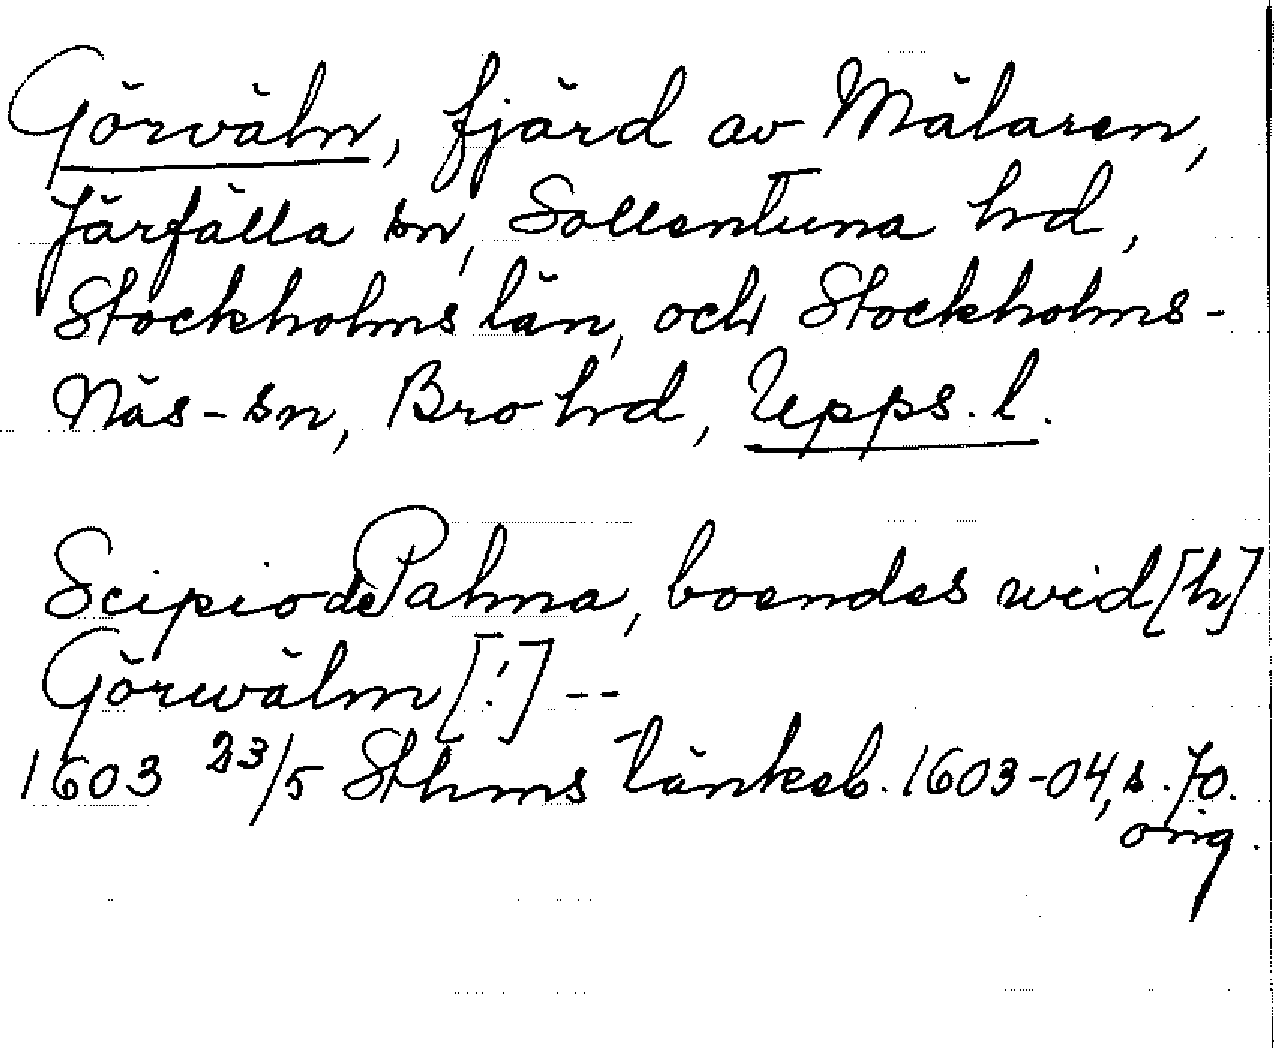 Görväln, fjärd av Mälaren,
Järfälla sn, Sollentuna hd,
Stockholms län, och Stockholms-
Näs-sn, Bro hd, Upps. l.
Scipio de Palma, boendes wid[h]
Görwälm [!] --
1603 23/5 Sthms tänkeb. 1603-04, s. 70.
orig.